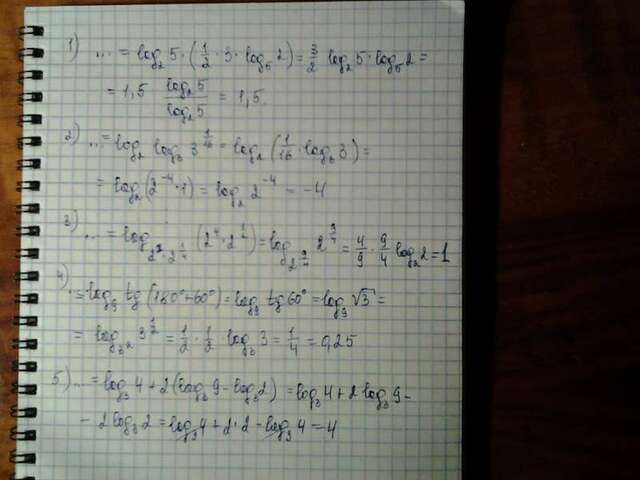 1) ... = log₂5 · (1/2 · 3 · log₅2) = 3/2 log₂5 · log₅2 =
= 1,5 log₂5/log₂5 = 1,5.
2) ... = log₂ log₃ 3^(1/16) = log₂(1/16 · log₃3) =
= log₂(2⁻⁴ · 1) = log₂ 2⁻⁴ = -4
3) ... = log_(2² · 2^(1/4)) (2⁴ · 2^(1/2)) = log_(2^(9/4)) 2^(9/4) = 4/9 · 9/4 log₂2 = 1
4) ... = log₉ tg(180° + 60°) = log₉ tg60° = log₉ √3 =
= log_(3²) 3^(1/2) = 1/2 · 1/2 log₃3 = 1/4 = 0,25
5) ... = log₃4 + 2(log₃9 - log₃2) = log₃4 + 2log₃9 -
- 2log₃2 = log₃4 + 2 · 2 - log₃4 = 4